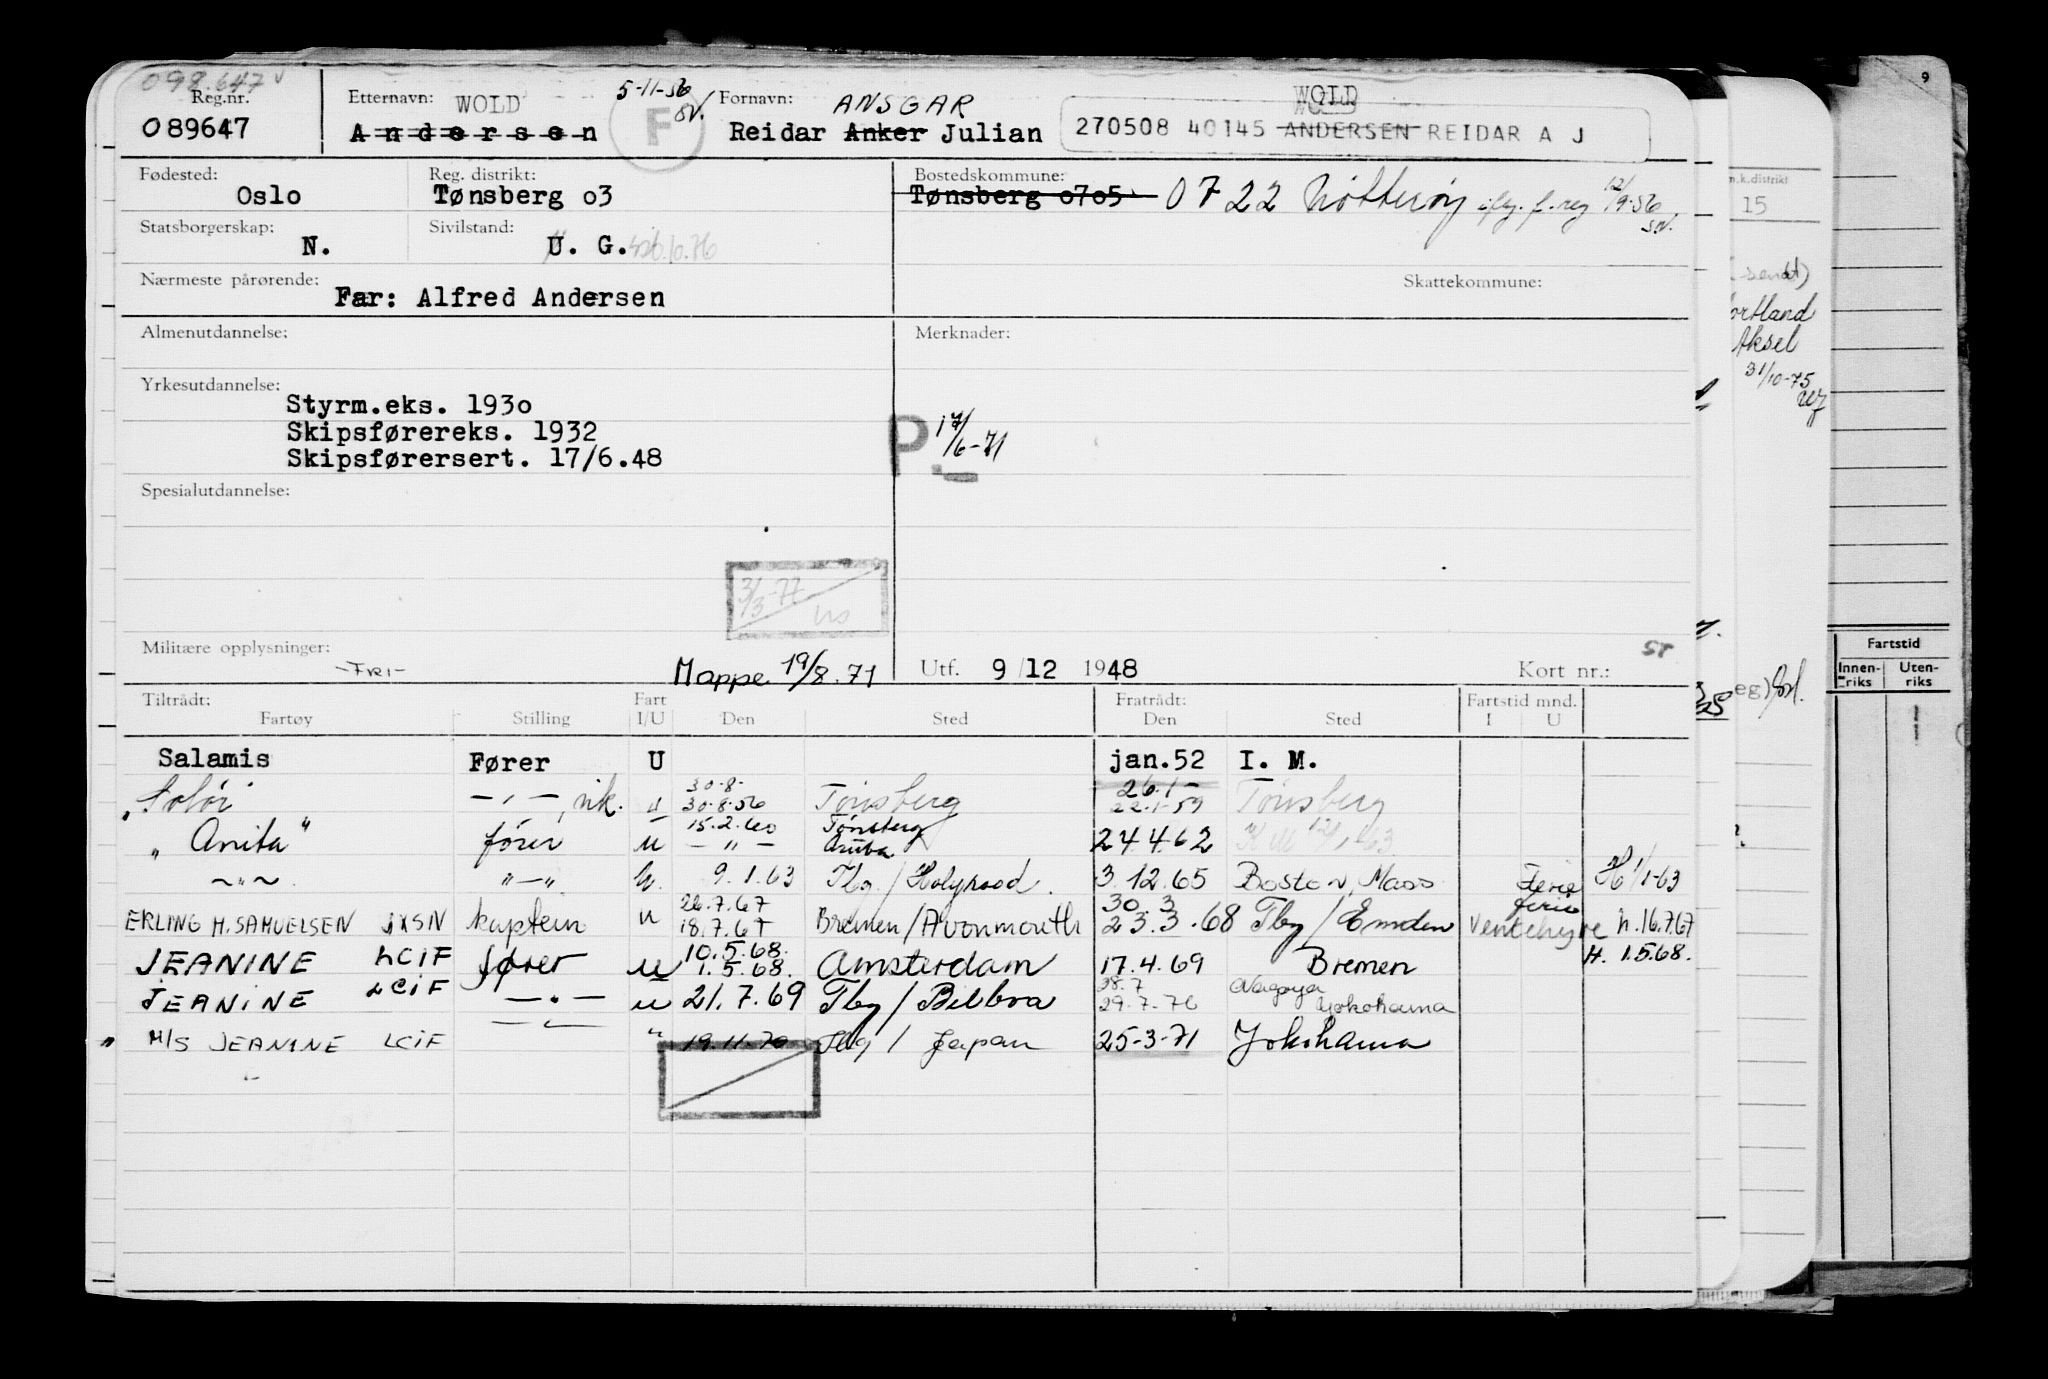 098.647 v
Reg.nr. 089647
Etternavn: WOLD Andersen
5-11-56 sv. F
Fornavn: ANSGAR
Reidar Anker Julian
WOLD
270508 40145 ANDERSEN REIDAR A J
Fødested: Oslo
Reg. distrikt: Tønsberg o3
Bostedskommune: Tønsberg o7o5 0722 Nøtterøy iflg. f. reg 12/9-56 sv.
Statsborgerskap: N.
Sivilstand: U. G.
Nærmeste pårørende: Far: Alfred Andersen
Skattekommune:
Almenutdannelse:
Merknader:
Yrkesutdannelse:
Styrm.eks. 193o
Skipsførereks. 1932
Skipsførersert. 17/6.48
P. 17/6-71
Spesialutdannelse:
3/3-77
Militære opplysninger: -Fri-
Mappe 19/8.71
Utf. 9/12 1948
Kort nr.:
Tiltrådt: Fart Fratrådt: Fartstid mnd.
Fartøy Stilling I/U Den Sted Den Sted I U
Salamis Fører U jan.52 I. M.
"Solør" — " —, vik. u 30-8- 30-8-56 Tønsberg 26.1- 22.1-59 Tønsberg
"Anita" fører u 15.2.60 — " — Tønsberg Aruba 24.4.62
— " — " — " 9.1.63 Tbg. / Holyhood. 3.12.65 Boston, Mass Ferie H 1/1-63
ERLING H. SAMUELSEN JXSN kaptein u 26.7.67 18.7.67 Bremen/Avonmouth 30.3 23.3.68 Tbg/Emden Ferie Ventehyre h.16.7.67
JEANINE LCIF fører u 10.5.68. 1.5.68. Amsterdam 17.4.69 Bremen H. 1.5.68.
JEANINE LCIF — " — u 21.7.69 Tbg/Bilboa 28.7 29.7.70 Nagoya Yokohama
M/S JEANINE LCIF — " — " 19.11.70 Tbg / Japan 25-3-71 Yokohama
n.k.distrikt
15
Aksel
31/10-75
9
Fartstid
Innenriks Utenriks